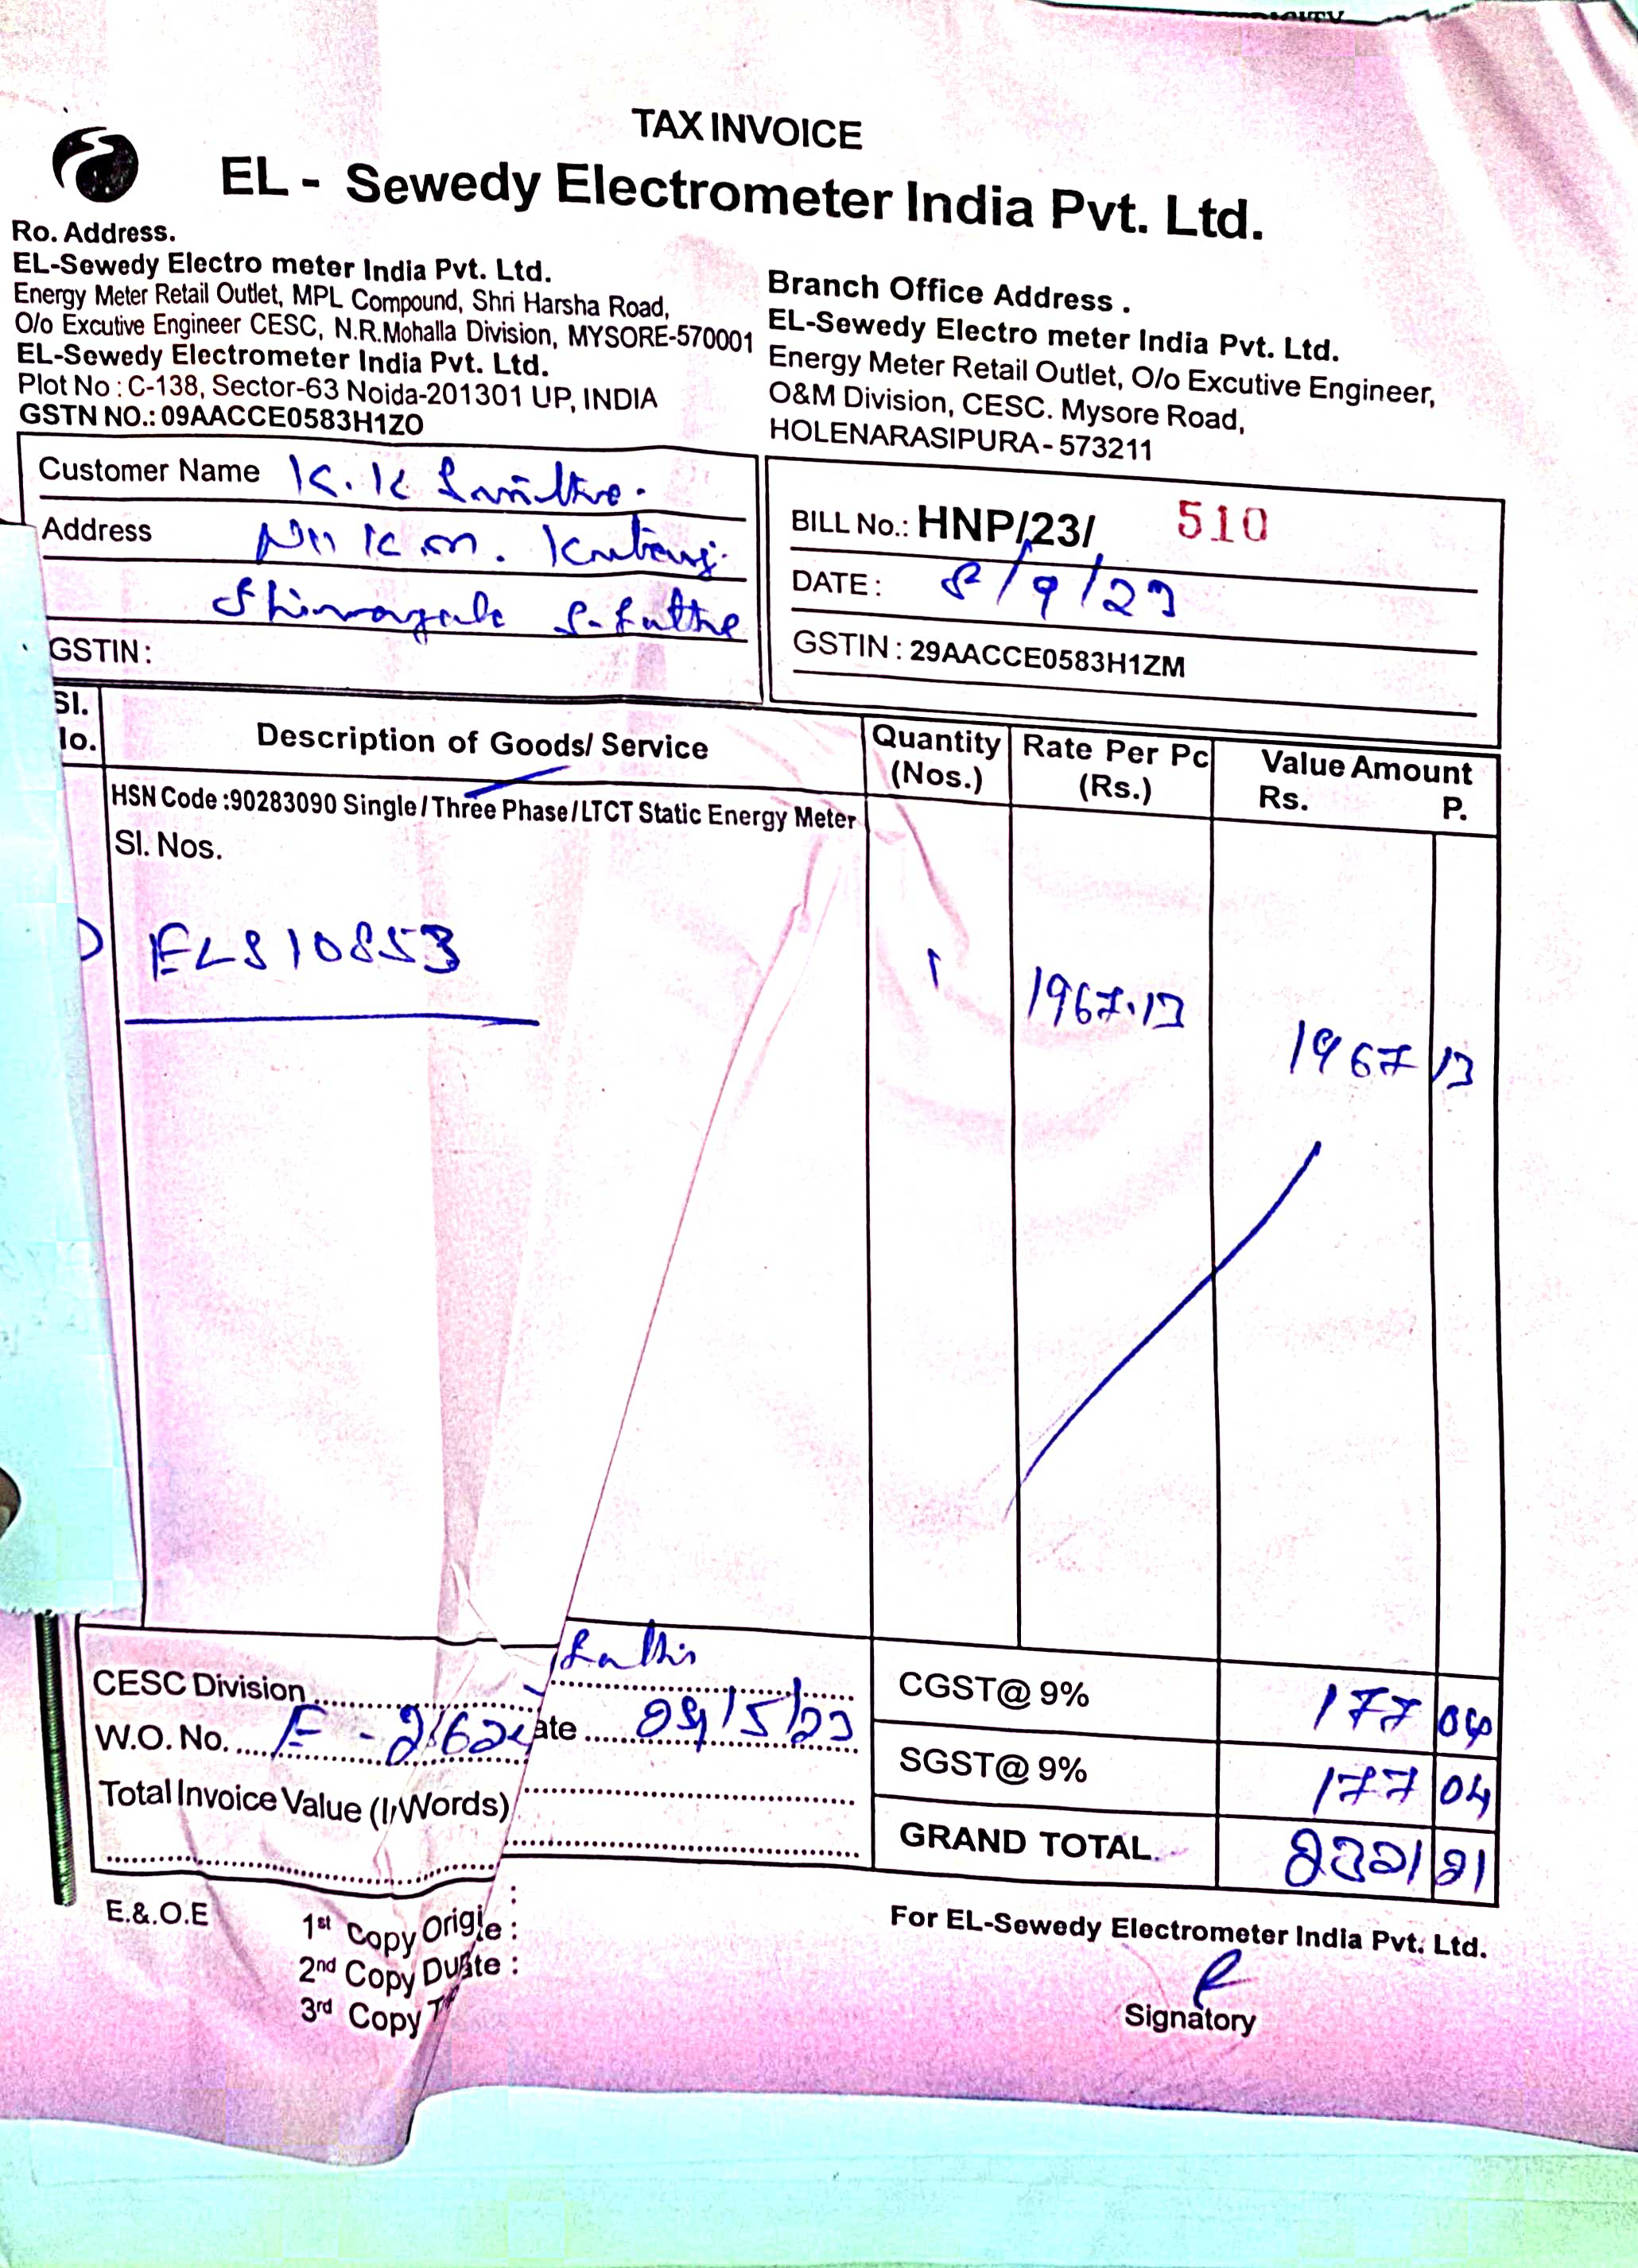 TAX INVOICE
EL - Sewedy Electrometer India Pvt. Ltd.
Ro. Address.
EL-Sewedy Electro meter India Pvt. Ltd.
Energy Meter Retail Outlet, MPL Compound, Shri Harsha Road,
O/o Excutive Engineer CESC, N.R.Mohalla Division, MYSORE-570001
EL-Sewedy Electrometer India Pvt. Ltd.
Plot No : C-138, Sector-63 Noida-201301 UP, INDIA
GSTN NO.: 09AACCE0583H1ZO
Branch Office Address .
EL-Sewedy Electro meter India Pvt. Ltd.
Energy Meter Retail Outlet, O/o Excutive Engineer,
O&M Division, CESC. Mysore Road,
HOLENARASIPURA - 573211
Customer Name K.K
Address
GSTIN :
BILL No.: HNP/23/ 510
DATE : 8/9/23
GSTIN : 29AACCE0583H1ZM
Sl. Description of Goods/ Service Quantity (Nos.) Rate Per Pc (Rs.) Value Amount Rs. P.
HSN Code :90283090 Single / Three Phase / LTCT Static Energy Meter
Sl. Nos.
ELS10853 1 1967.13 1967 13
CESC Division
W.O. No.
Total Invoice Value (I Words)
CGST@ 9% 177 04
SGST@ 9% 177 04
GRAND TOTAL 2321 21
E.&.O.E
1st Copy
2nd Copy
3rd Copy
For EL-Sewedy Electrometer India Pvt. Ltd.
Signatory